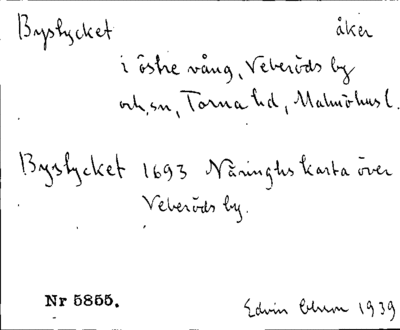 Bystycket åker
i östre vång, Veberöds by
och sn, Torna hd, Malmöhus l.
Bystycket 1693 Näringhs karta över
Veberöds by.
Nr 5855.
Edvin 1939